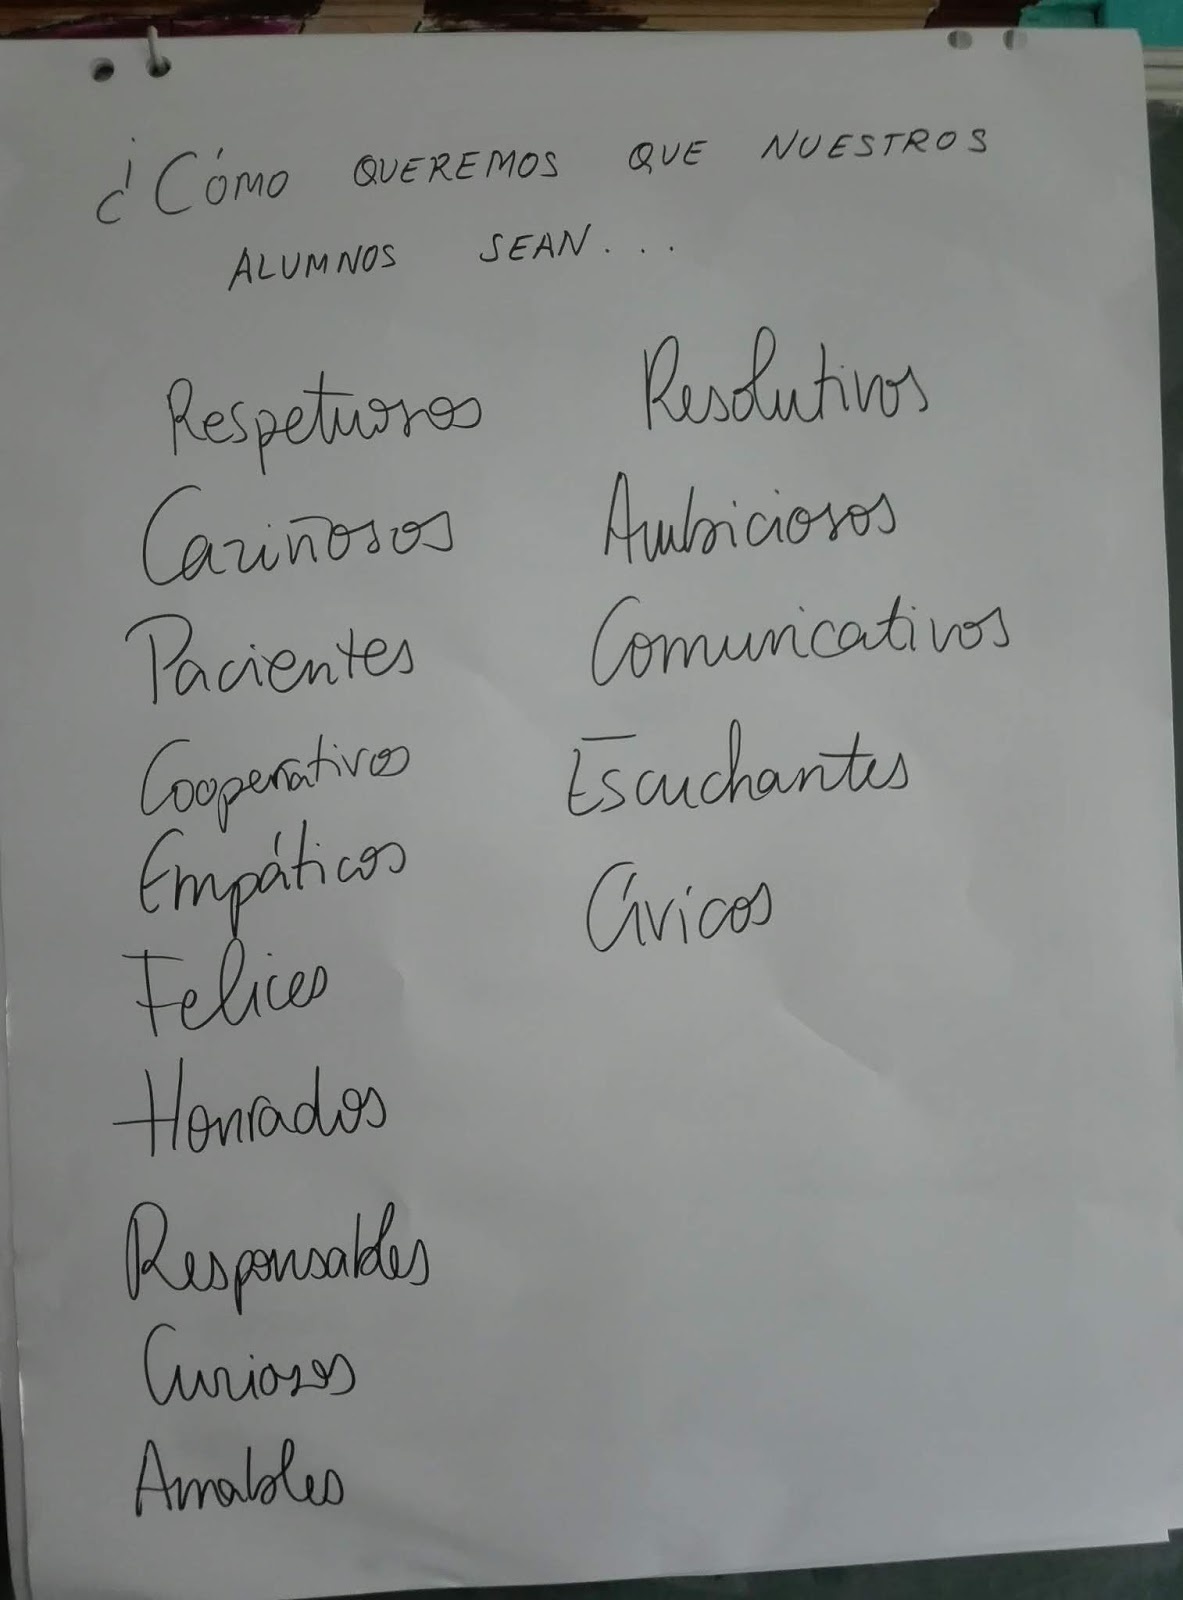 ¿CÓMO QUEREMOS QUE NUESTROS
ALUMNOS SEAN...
Respetuosos
Cariñosos
Pacientes
Cooperativos
Empáticos
Felices
Honrados
Responsables
Curiosos
Amables
Resolutivos
Ambiciosos
Comunicativos
Escuchantes
Cívicos